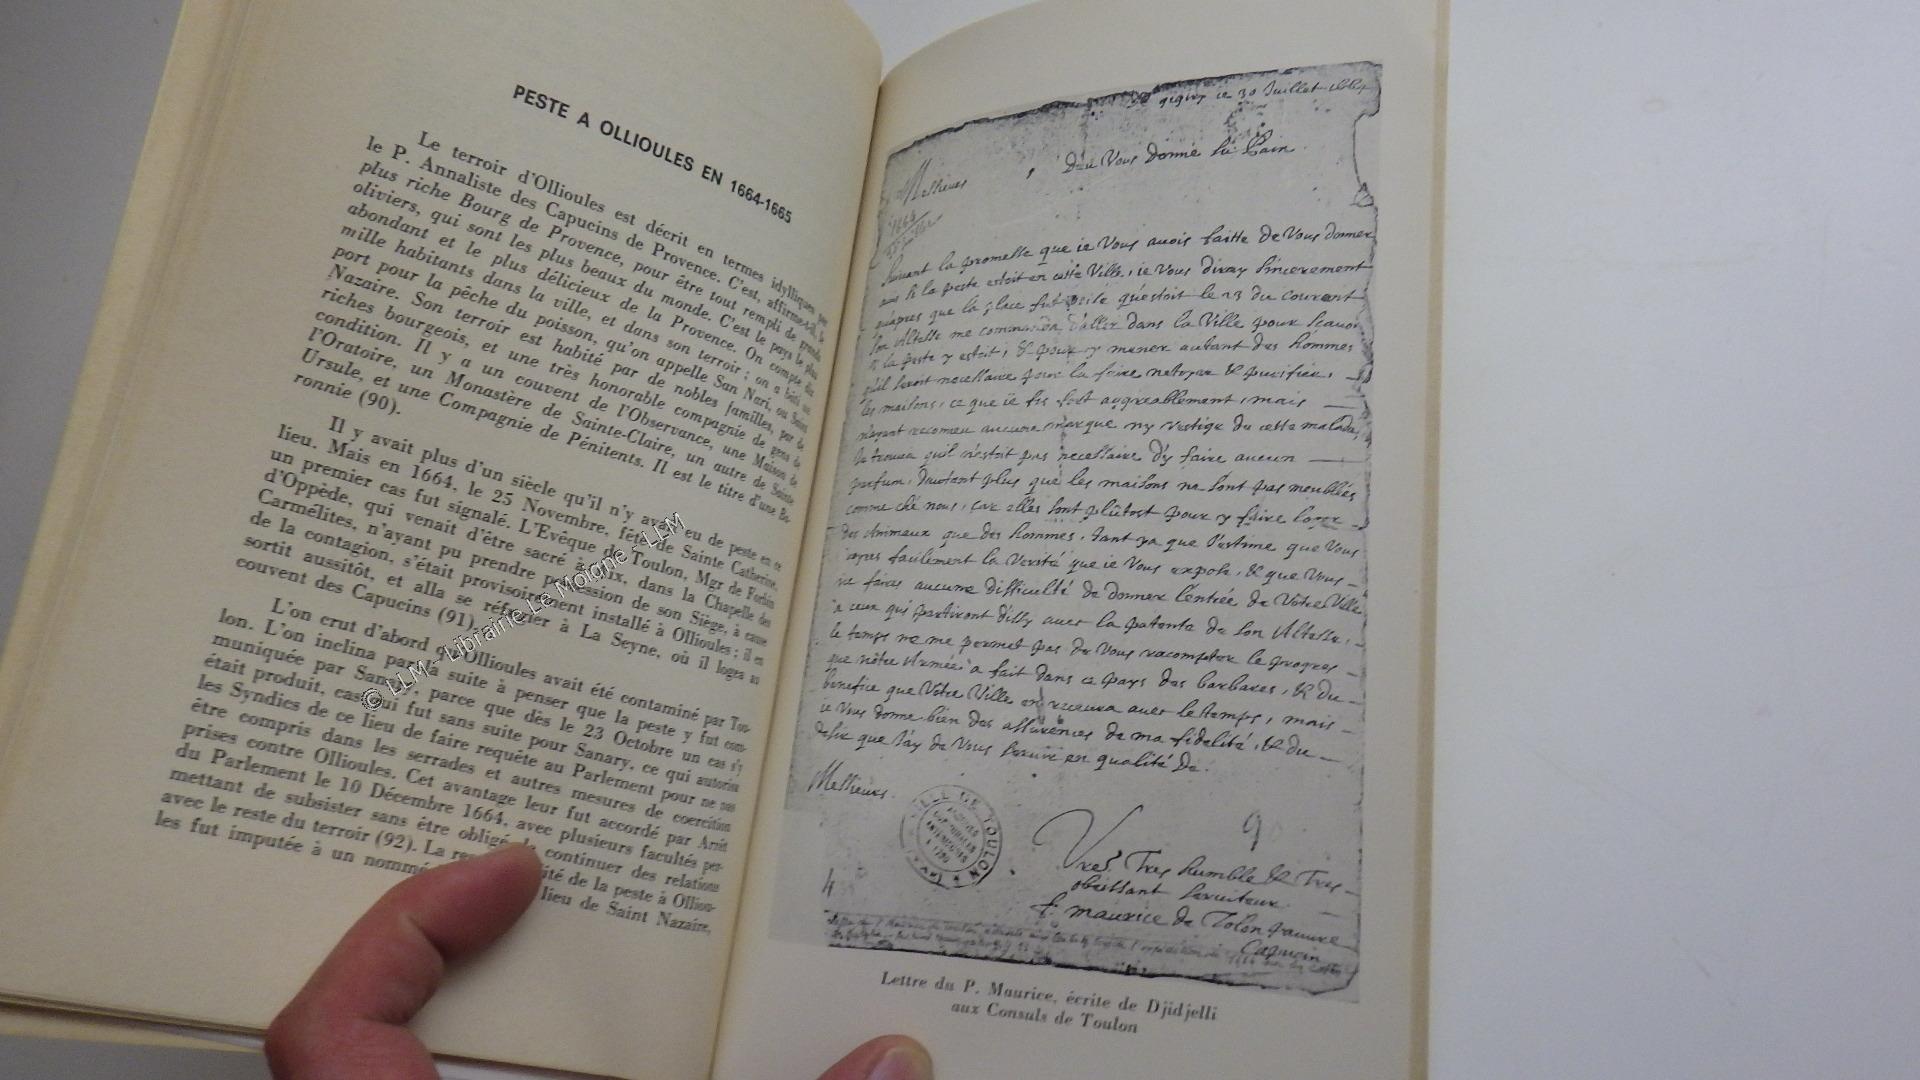 PESTE A OLLIOULES EN 1664-1665
Le terroir d'Ollioules est décrit en termes idylliques par
le P. Annaliste des Capucins de Provence. C'est, affirme-t-il, le
plus riche Bourg de Provence, pour être tout rempli de grands
oliviers, qui sont les plus beaux du monde. C'est le pays le plus
abondant et le plus délicieux de la Provence. On compte dix
mille habitants dans la ville, et dans son terroir ; on a bâti un
port pour la pêche du poisson, qu'on appelle San Nari, ou Saint
Nazaire. Son terroir est habité par de nobles familles, par de
riches bourgeois, et une très honorable compagnie de gens de
condition. Il y a un couvent de l'Observance, une Maison de
l'Oratoire, un Monastère de Sainte-Claire, un autre de Sainte
Ursule, et une Compagnie de Pénitents. Il est le titre d'une Ba-
ronnie (90).
Il y avait plus d'un siècle qu'il n'y avait eu de peste en ce
lieu. Mais en 1664, le 25 Novembre, fête de Sainte Catherine,
un premier cas fut signalé. L'Evêque de Toulon, Mgr de Forbin
d'Oppède, qui venait d'être sacré à Aix, dans la Chapelle des
Carmélites, n'ayant pu prendre possession de son Siège, à cause
de la contagion, s'était provisoirement installé à Ollioules ; il en
sortit aussitôt, et alla se réfugier à La Seyne, où il logea au
couvent des Capucins (91).
L'on crut d'abord qu'Ollioules avait été contaminé par Tou-
lon. L'on inclina par la suite à penser que la peste y fut com-
muniquée par Sanary, parce que dès le 23 Octobre un cas s'y
était produit, cas qui fut sans suite pour Sanary, ce qui autorisa
les Syndics de ce lieu de faire requête au Parlement pour ne pas
être compris dans les serrades et autres mesures de coercition
prises contre Ollioules. Cet avantage leur fut accordé par Arrêt
du Parlement le 10 Décembre 1664, avec plusieurs facultés per-
mettant de subsister sans être obligé de continuer des relations
avec le reste du terroir (92). La de la peste à Olliou-
les fut imputée à un nommé lieu de Saint Nazaire,
© LLM - Librairie Le Moigne - LLM
gigery ce 30 Juillet 1664
Dieu Vous donne sa Paix
Messieurs
1664
Juillet
Suivant la promesse que ie Vous avois faitte de Vous donner
avis si la peste estoit en cette Ville, ie Vous diray sincerement
qu'apres que la place fut prise qu'estoit le 23 du courant
son Altesse me commanda d'aller dans la Ville pour scavoir
si la peste y estoit, & pour y mener autant des hommes
qu'il seroit necessaire pour la faire netoyer & purifier,
les maisons, ce que ie fis fort aggreablement, mais
n'ayant reconeu aucune marque ny vestige de cette maladie,
Ie trouva quil n'estoit pas necessaire d'y faire aucun
parfum, d'autant plus que les maisons ne sont pas meublés
comme ché nous, car elles sont plûtost pour y faire loger
des Animaux que des hommes, tant ya que j'estime que Vous
croires facilement la Verité que ie Vous expose, & que Vous
ne faires aucune difficulté de donner l'entrée de Votre Ville
a ceux qui partiront d'illy avec la patente de son Altesse,
le temps ne me permet pas de Vous racompter le progres
que nôtre Armée a fait dans ce pays des barbares, & du
benefice que Votre Ville en recevra avec le temps, mais
ie Vous donne bien des assurences de ma fidelité, & du
desir que j'ay de Vous servir en qualité de.
Messieurs.
VILLE DE TOULON
ARCHIVES
ANTERIEURES
A 1790
9
Vre Tres humble & Tres
obeissant serviteur.
f. maurice de Tolon pauvre
Capucin
4
Lettre du P. Maurice, écrite de Djidjelli
aux Consuls de Toulon